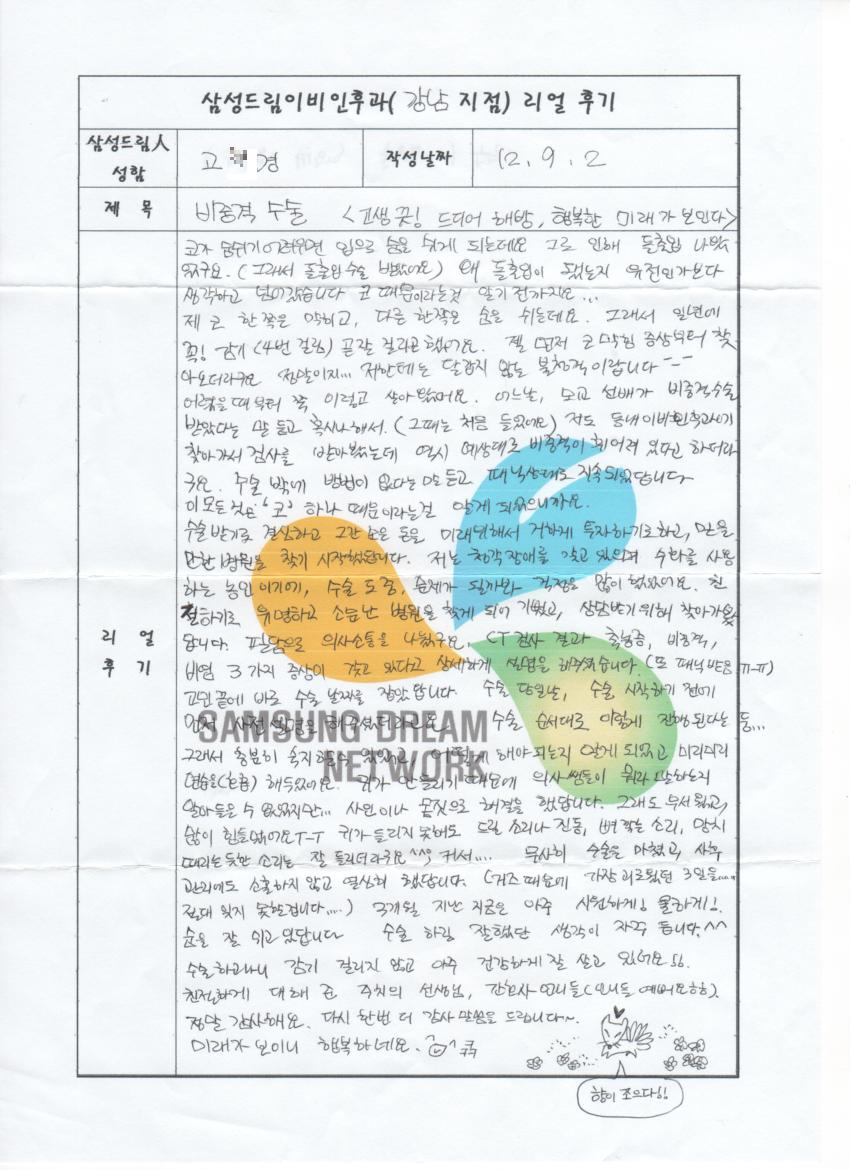 삼성드림이비인후과( 강남 지점) 리얼 후기
삼성드림人
성함
고 경
작성날짜
12. 9. 2
제 목
비중격 수술 <고생 끝! 드디어 해방, 행복한 미래가 보인다>
리 얼
후 기
코가 숨쉬기 어려우면 입으로 숨을 쉬게 되는데요 그로 인해 돌출입 나왔
었구요. (그래서 돌출입수술 받았어요) 왜 돌출입이 됐는지 유전인가보다
생각하고 넘어갔습니다 코 때문이라는것 알기 전까지요...
제 코 한쪽은 막히고, 다른 한쪽은 숨을 쉬는데요. 그래서 일년에
꼭! 감기 (4번 걸림) 곧잘 걸리곤 했어요. 젤 먼저 코막힘 증상부터 찾
아오더라구요 정말이지... 저한테는 달갑지 않는 불청객이랍니다 -_-
어렸을때부터 쭉 이렇고 살아왔어요. 어느날, 모교 선배가 비중격수술
받았다는 말 듣고 혹시나해서. (그때는 처음 들었어요) 저도 동네이비인후과에
찾아가서 검사를 받아봤는데 역시 예상대로 비중격이 휘어져 있다고 하더라
구요. 수술 밖에 방법이 없다는 말 듣고 때닉상태로 지속되었답니다
이 모든것은 '코' 하나 때문이라는걸 알게 되었으니까요.
수술받기로 결심하고 그간 모은 돈을 미래위해서 거하게 투자하기로하고, 믿을
만한 병원을 찾기 시작했답니다. 저는 청각장애를 갖고 있으며 수화를 사용
하는 농인이기에, 수술 도중, 문제가 될까봐 걱정을 많이 했었어요. 친
절하기로 유명하고 소문난 병원을 찾게 되어 기뻤고, 상담받기 위해 찾아가봤
답니다. 필담으로 의사소통을 나눴구요, CT검사 결과 축농증, 비중격,
비염 3가지 증상이 갖고 있다고 상세하게 설명을 해주셨습니다. (또 때닉받음 ㅠ-ㅠ)
고민끝에 바로 수술 날짜를 잡았답니다. 수술 당일날, 수술 시작하기 전에
먼저 사전설명을 해주셨더라구요. 수술 순서대로 어떻게 진행된다는 등...
그래서 충분히 숙지할수 있었고, 어떻게 해야되는지 알게 되었고 미리미리
해두었어요. 귀가 안들리기 때문에 의사쌤들이 뭐라 말하는지
알아들을 수 없었지만... 사인이나 몸짓으로 해결을 했답니다. 그래도 무서웠고,
많이 힘들었어요T-T 귀가 들리지 못해도 드릴 소리나 진동, 뼈 깎는 소리, 망치
때리는듯한 소리는 잘 들리더라구요^^; 커서.... 무사히 수술을 마쳤고, 사후
관리에도 소홀하지 않고 열심히 했답니다. (거즈때문에 가장 괴로웠던 3일을....
절대 잊지 못할겁니다....) 3개월 지난 지금은 아주 시원하게! 쿨하게!
숨을 잘 쉬고 있답니다 수술 하길 잘했단 생각이 자주 듭니다.^^
수술하고나니 감기 걸리지 않고 아주 건강하게 잘 살고 있네요!!
친절하게 대해 준 주치의 선생님, 간호사 언니들(언니들 예뻐요ㅎㅎ).
정말 감사해요. 다시 한번 더 감사 말씀을 드립니다~
미래가 보이니 행복하네요. 쿡쿡
향이 조으다!!
SAMSUNG DREAM
NETWORK